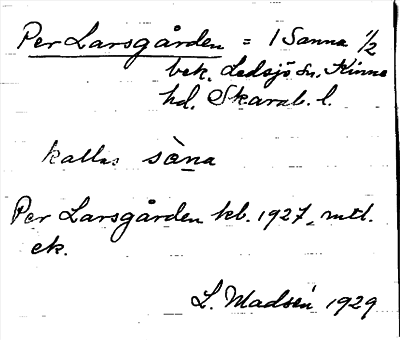 Per Larsgården = 1 Sanna 1/2
bek. Ledsjö sn. Kinne
hd. Skarab. l.
kallas sàna
Per Larsgården kb. 1927, mtl.
ek.
L. Madsén 1929